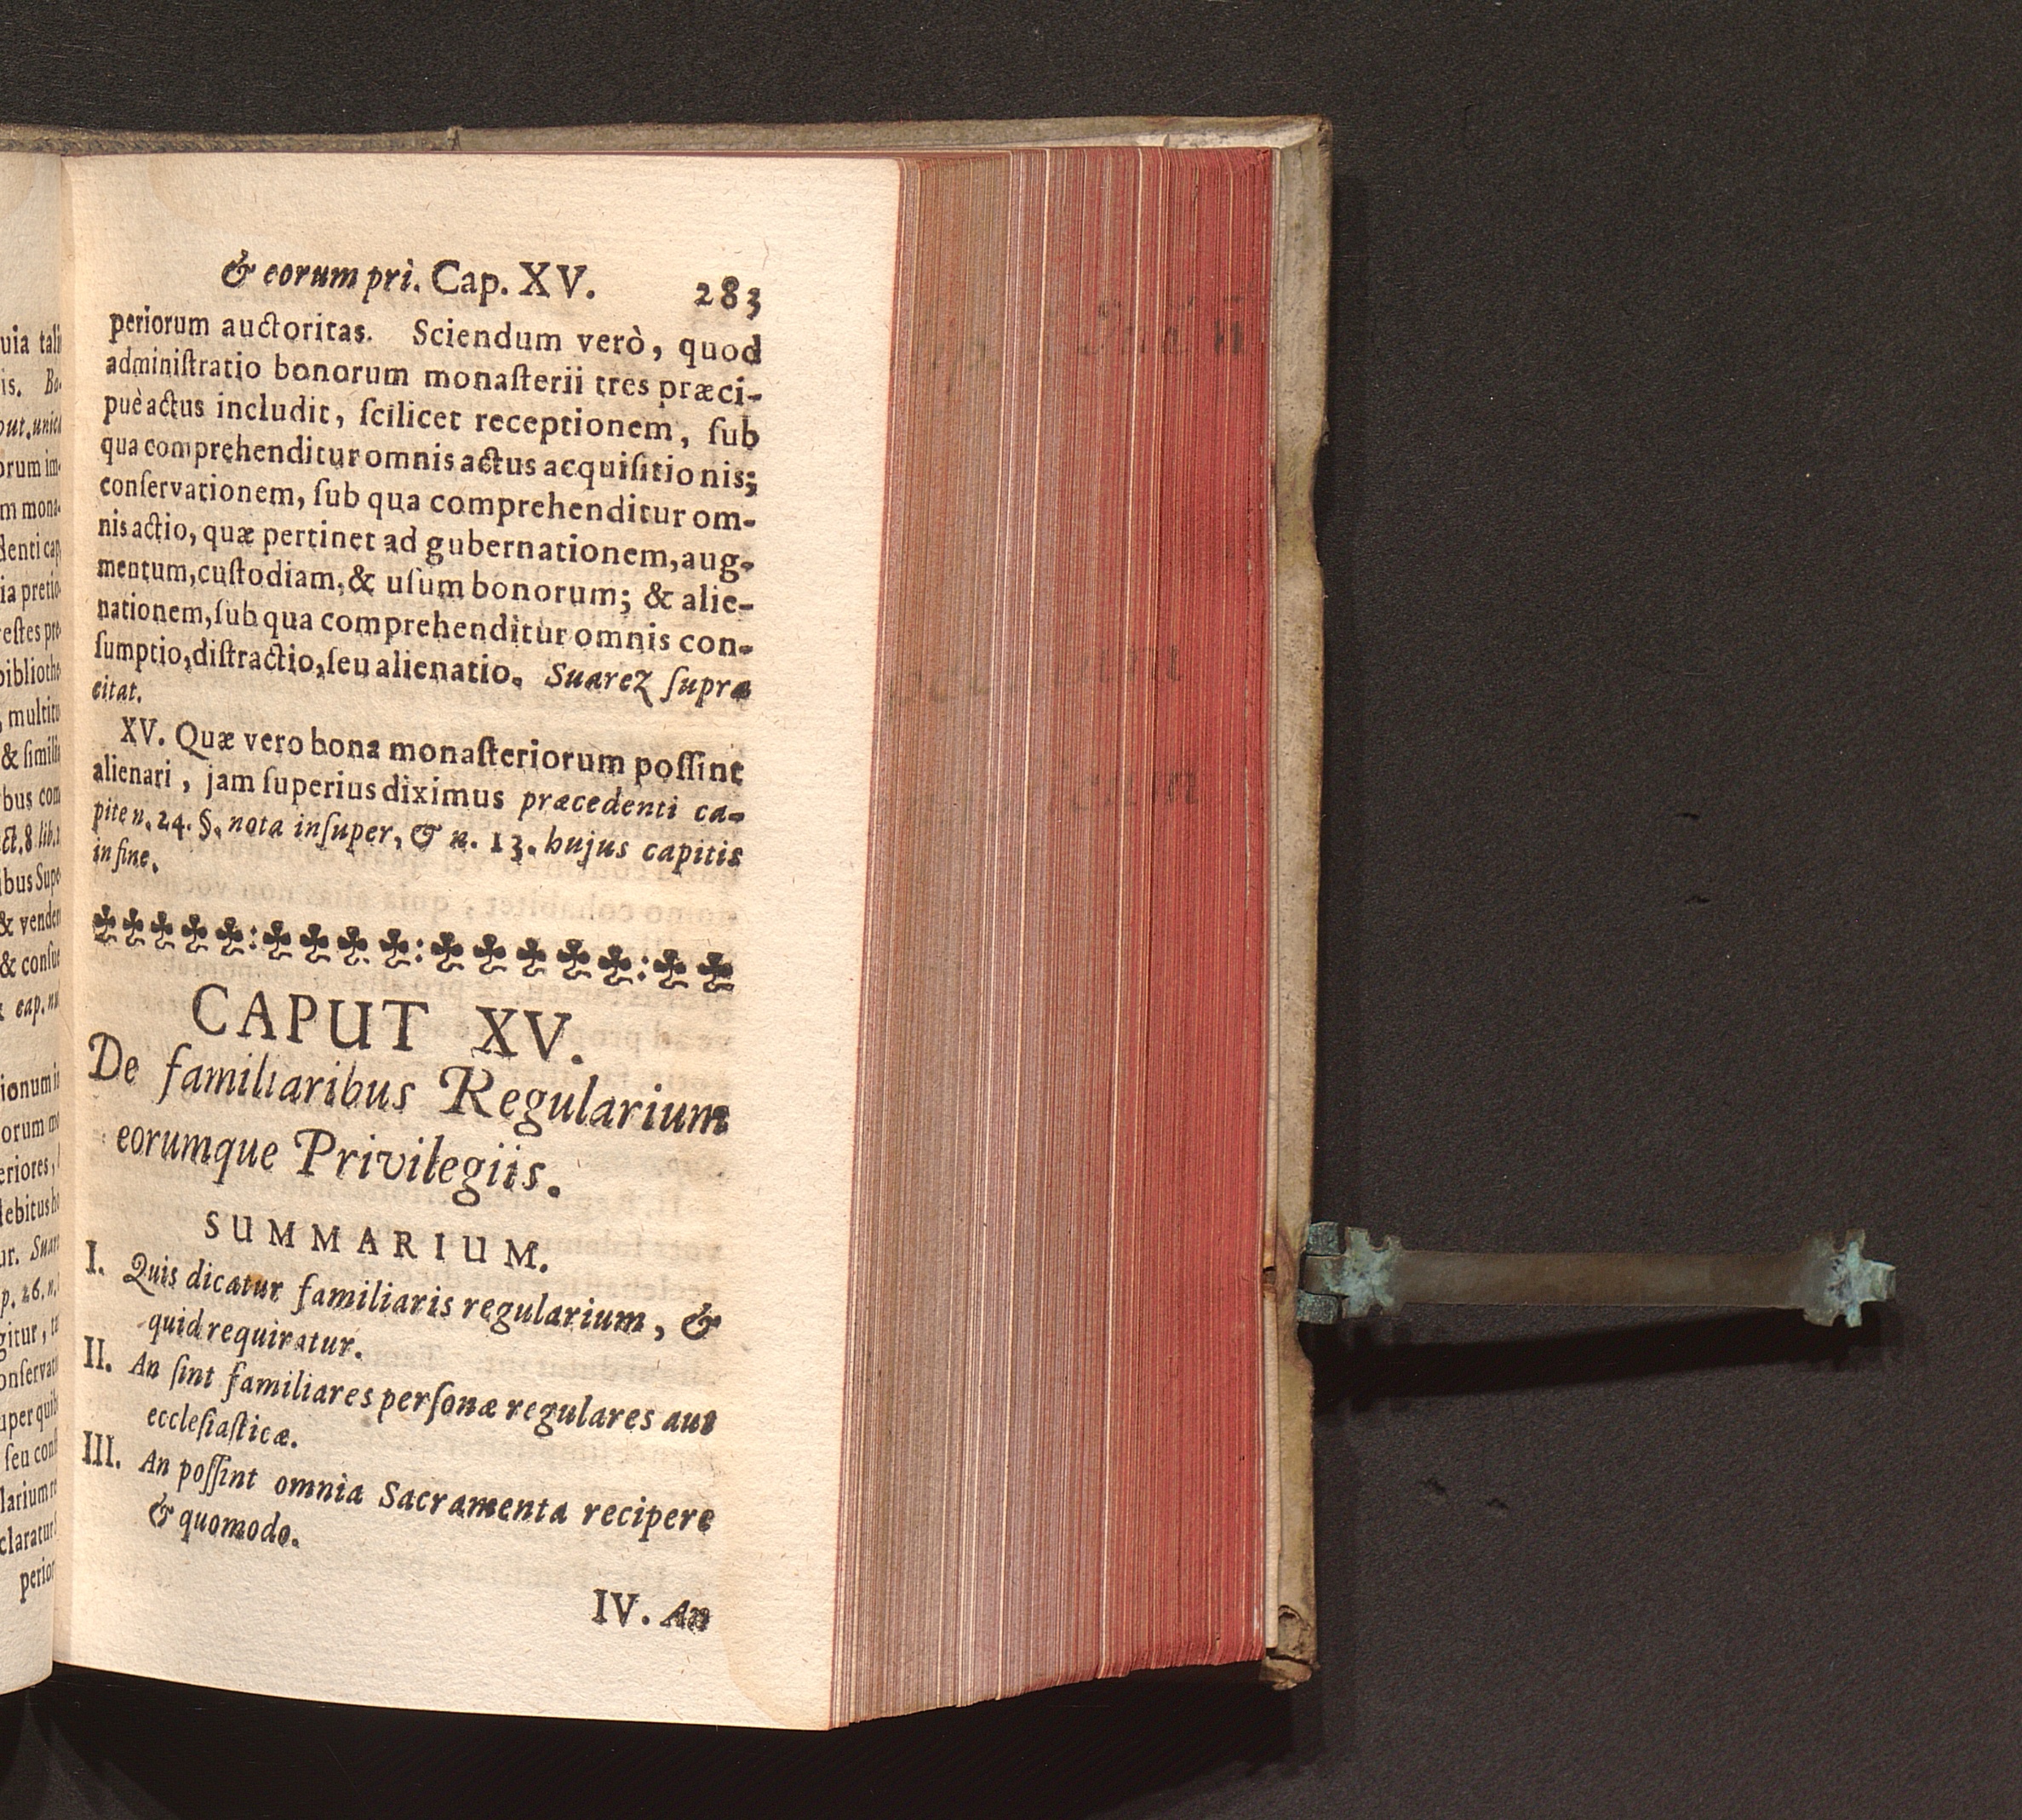 & eorum pri. Cap. XV. 283
periorum auctoritas. Sciendum verò, quod
adminiſtratio bonorum monaſterii tres præci-
puè actus includit, ſcilicet receptionem, ſub
qua comprehenditur omnis actus acquiſitionis;
conſervationem, ſub qua comprehenditur om-
nis actio, quæ pertinet ad gubernationem, aug-
mentum, cuſtodiam, & uſum bonorum; & alie-
nationem, ſub qua comprehenditur omnis con-
ſumptio, diſtractio, ſeu alienatio. Suarez ſupra
citat.
XV. Quæ vero bona monaſteriorum poſſint
alienari, jam ſuperius diximus præcedenti ca-
pite n. 24. §. nota inſuper, & n. 13. hujus capitis
in fine.
CAPUT XV.
De familiaribus Regularium
eorumque Privilegiis.
SUMMARIUM.
I. Quis dicatur familiaris regularium, &
quid requiratur.
II. An ſint familiares perſonæ regulares aut
eccleſiaſticæ.
III. An poſſint omnia Sacramenta recipere
& quomodo.
IV. An
uia tali
is. Bo-
put. unica
orum im-
m mona-
denti cap
ia pretio-
teſtes pre-
bibliothe-
, multitu
& ſimilia
bus com
ct. 8 lib. 1
ibus Supe-
& venden
& conſue
cap. nu
ionum in
orum mo
eriores,
debitus ho
ur. Suar
p. 26. n.
gitur, ta
onſervati
uper quib
ſeu conſ
larium re
claratur
perior